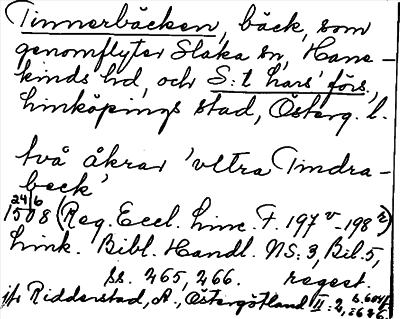 Tinnerbäcken, bäck, som
genomflyter Slaka sn, Hane-
kinds hd, och S:t Lars' förs.,
Linköpings stad, Österg. l.
två åkrar 'vltra Tindra-
beck'
24/6
1508 (Reg. Eccl. Linc. F. 197v-198r)
Link. Bibl. Handl. NS:3, Bil. 5,
ss. 265, 266. regest.
jfr Ridderstad, A., Östergötland II:2,